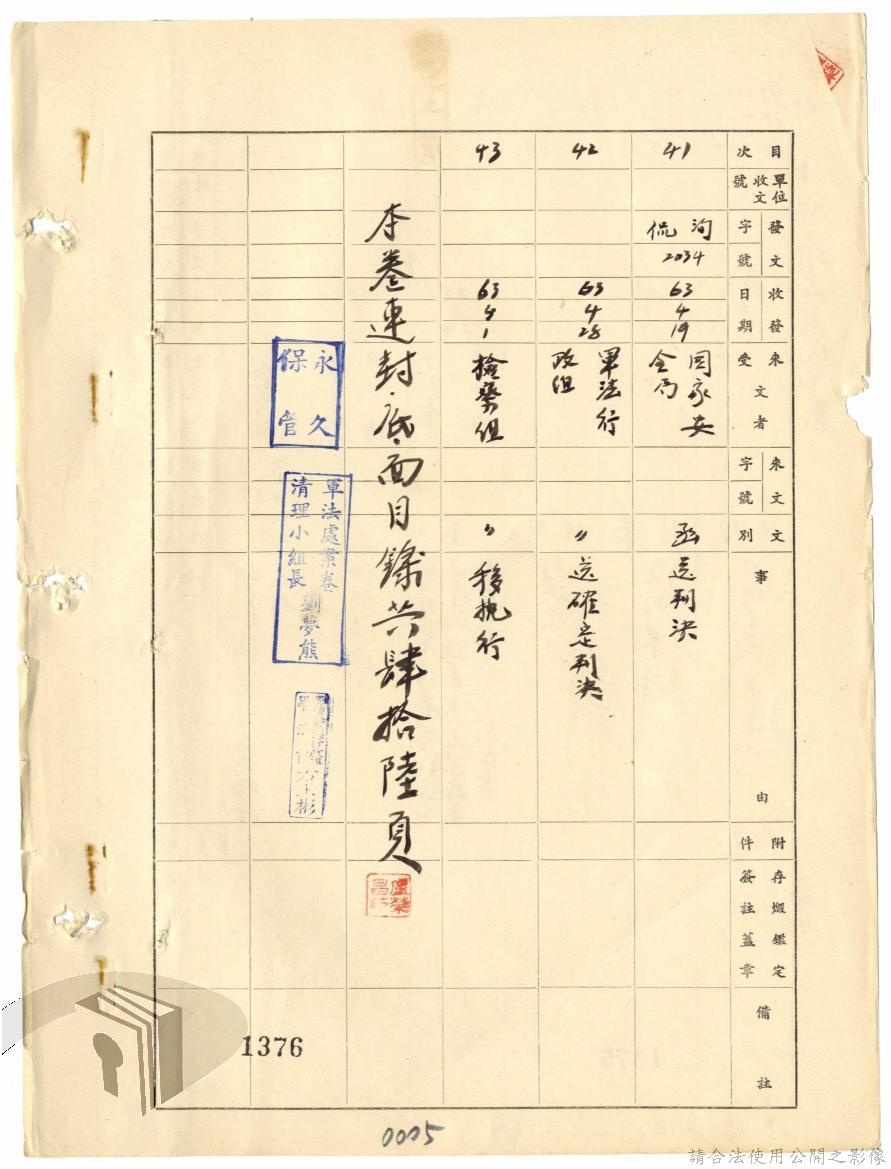 目次
單位收文號
發文字號
收發日期
來受文者
來文字號
文別
事由
附件
存燬鑑定簽註蓋章
備註
41
侃洵
2034
63
4
19
國家安全局
函送判決
42
63
4
28
軍法行政組
〃送確定判決
43
63
5
1
檢察組
〃移執行
本卷連封底面目錄共肆拾陸頁
永久保管
軍法處案卷清理小組長劉夢熊
1376
0005
請合法使用公開之影像